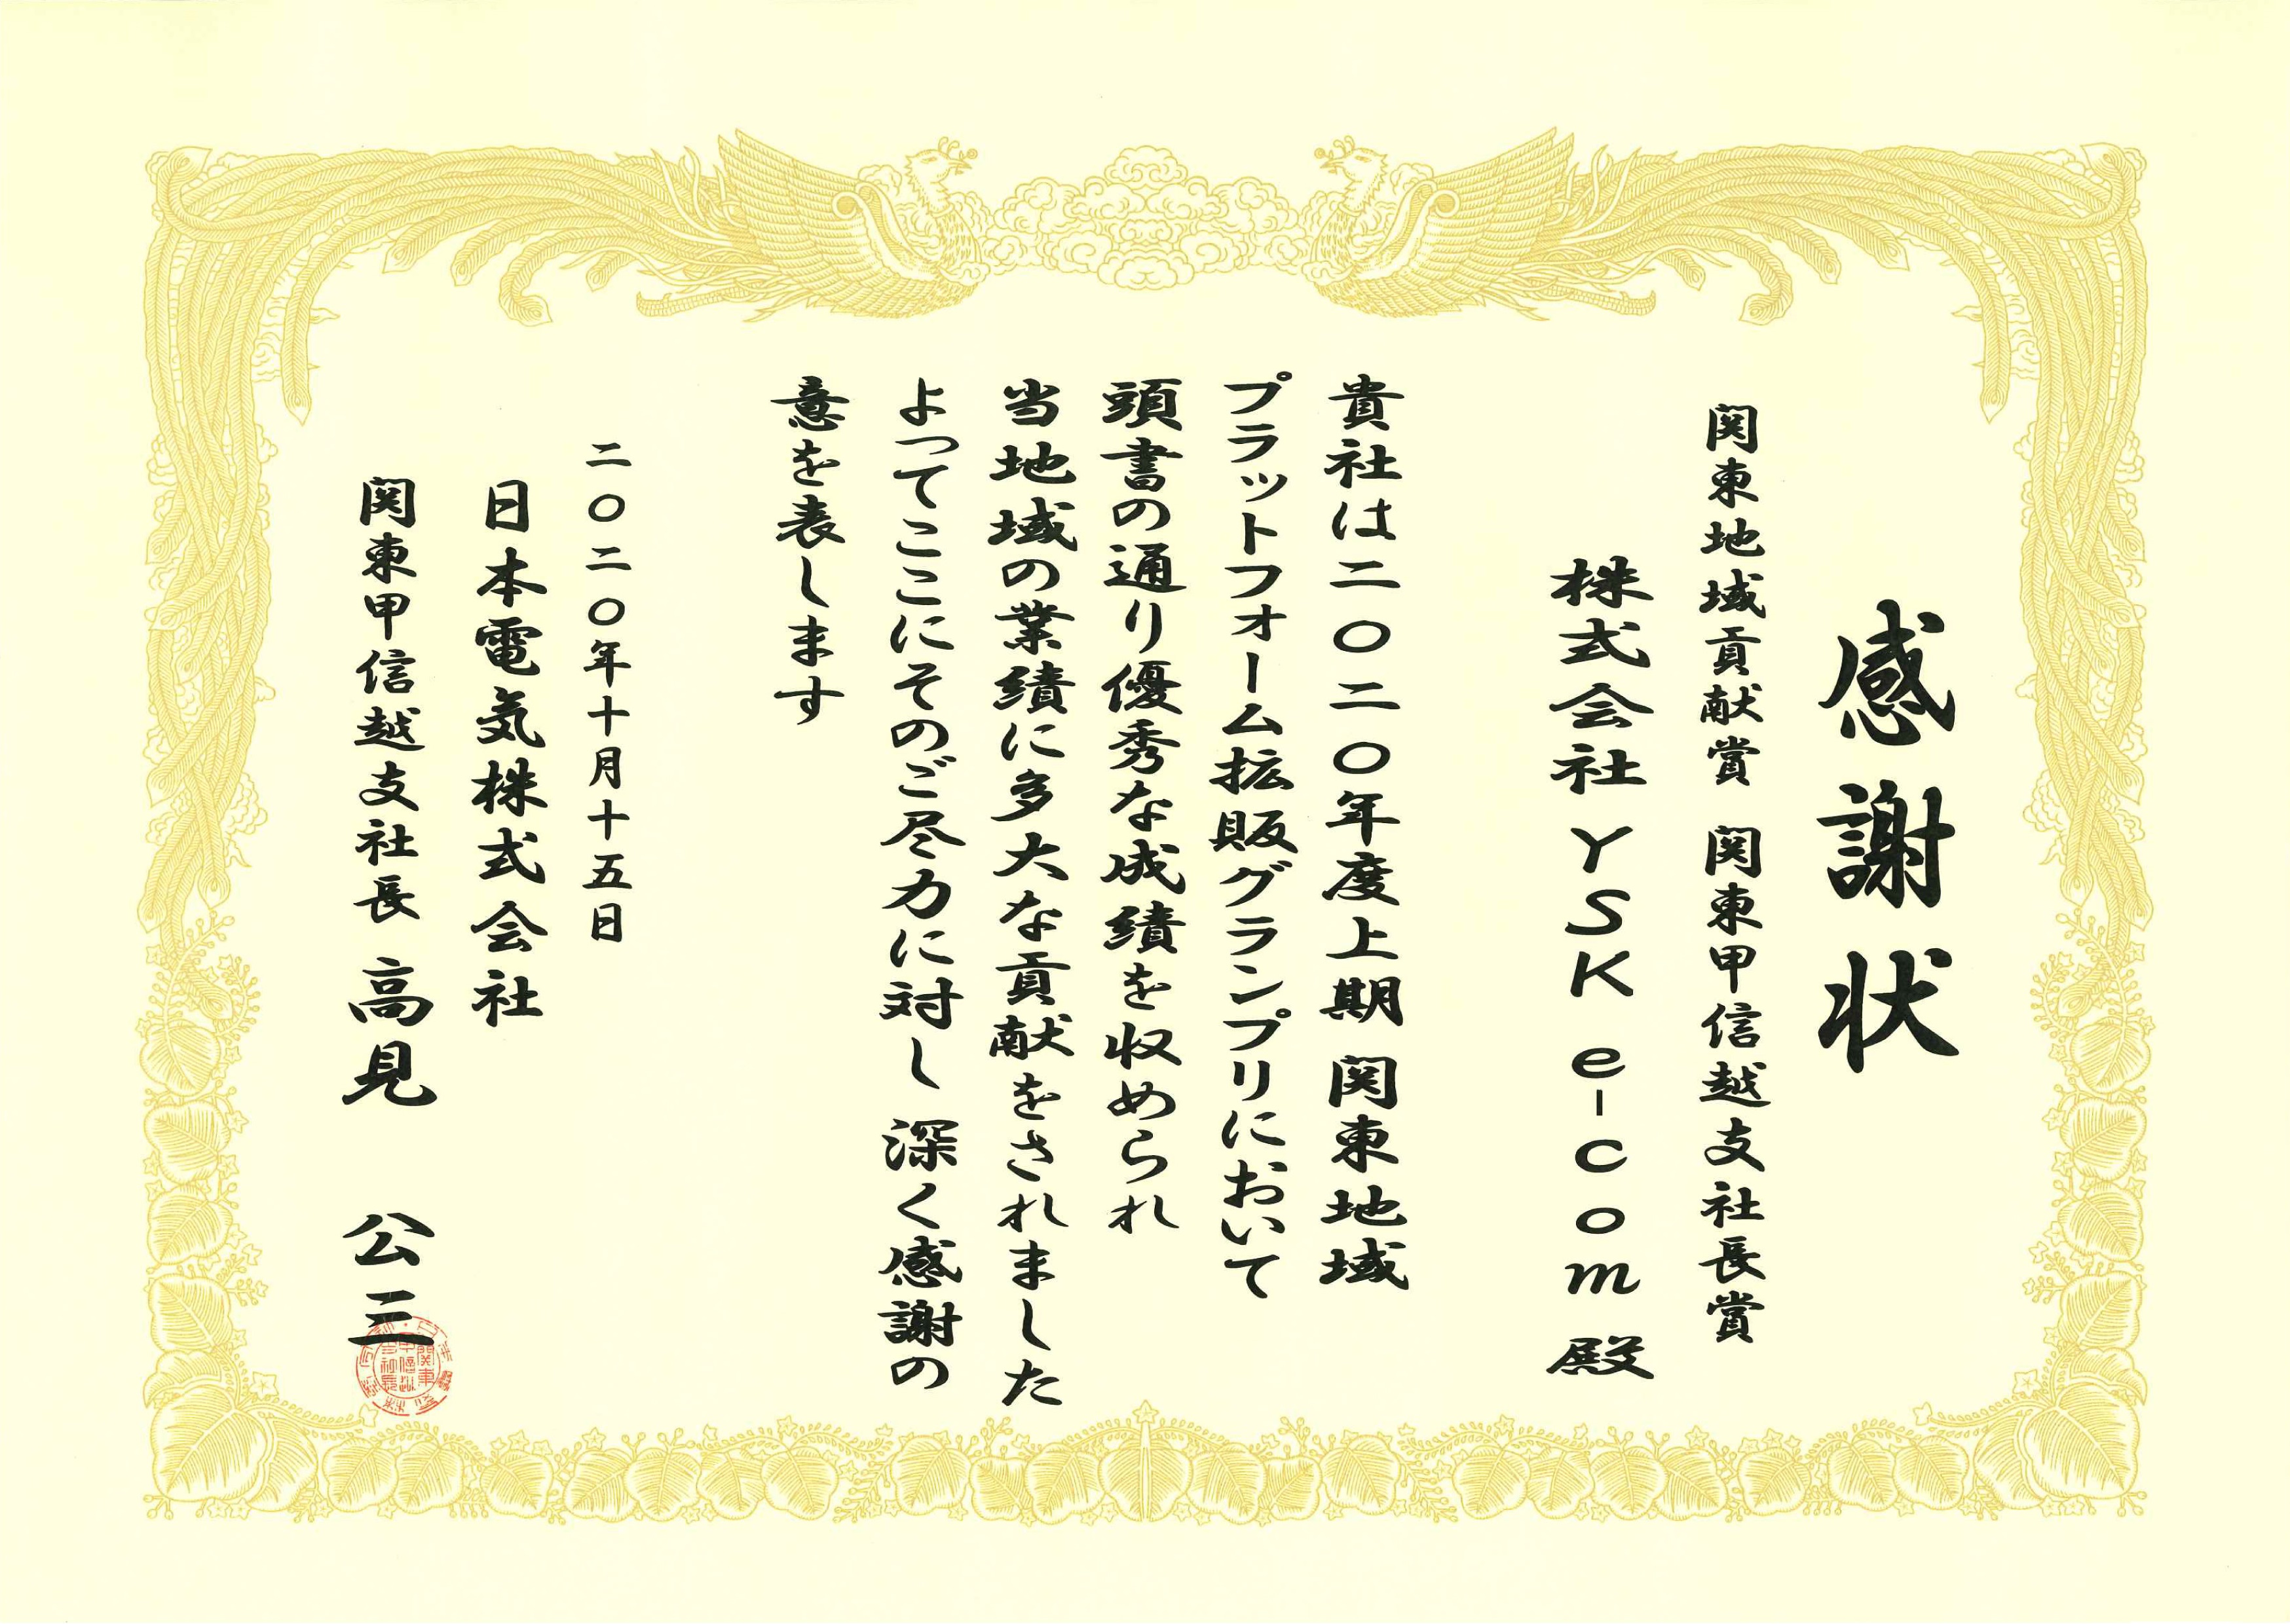 感謝状
関東地域貢献賞 関東甲信越支社長賞
株式会社 YSK e-com 殿
貴社は二〇二〇年度上期 関東地域
プラットフォーム拡販グランプリにおいて
頭書の通り優秀な成績を収められ
当地域の業績に多大な貢献をされました
よってここにそのご尽力に対し 深く感謝の
意を表します
二〇二〇年十月十五日
日本電気株式会社
関東甲信越支社長 高見 公三